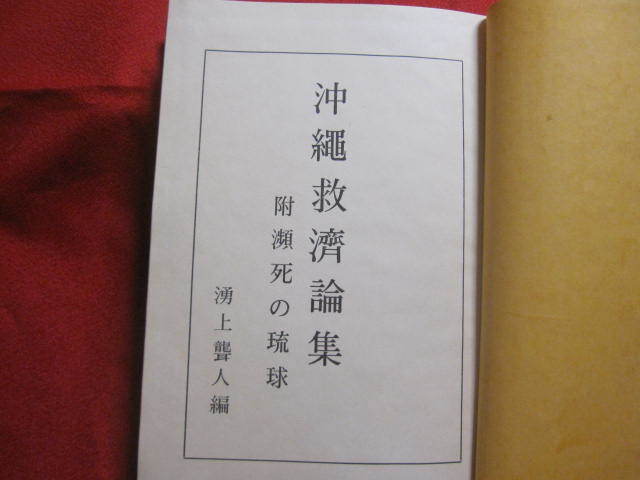 沖繩救濟論集
附瀕死の琉球
湧上聾人編